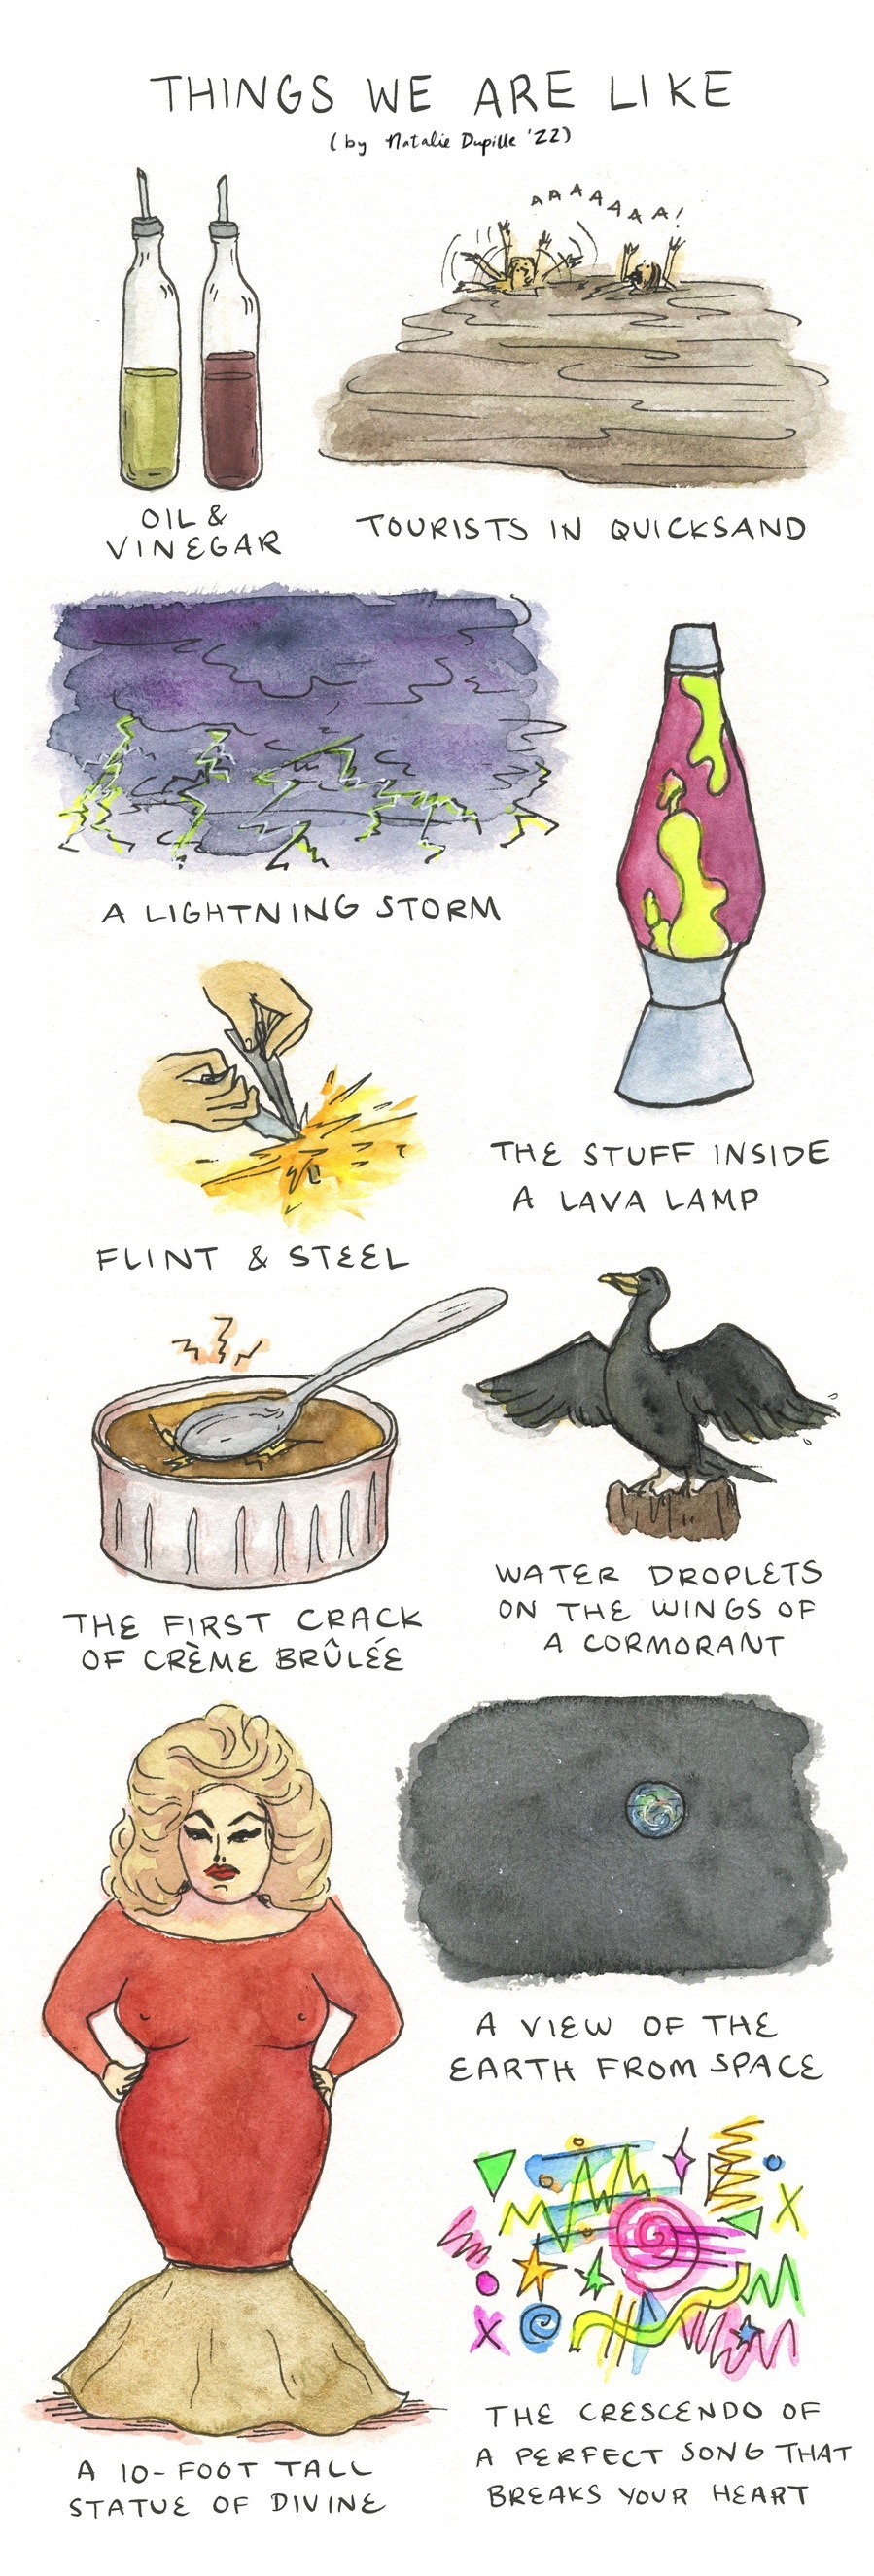 THINGS WE ARE LIKE
(by Natalie Dupille '22)
AAAAAAA!
OIL &
VINEGAR
TOURISTS IN QUICKSAND
A LIGHTNING STORM
THE STUFF INSIDE
A LAVA LAMP
FLINT & STEEL
THE FIRST CRACK
OF CRÈME BRÛLÉE
WATER DROPLETS
ON THE WINGS OF
A CORMORANT
A VIEW OF THE
EARTH FROM SPACE
A 10-FOOT TALL
STATUE OF DIVINE
THE CRESCENDO OF
A PERFECT SONG THAT
BREAKS YOUR HEART